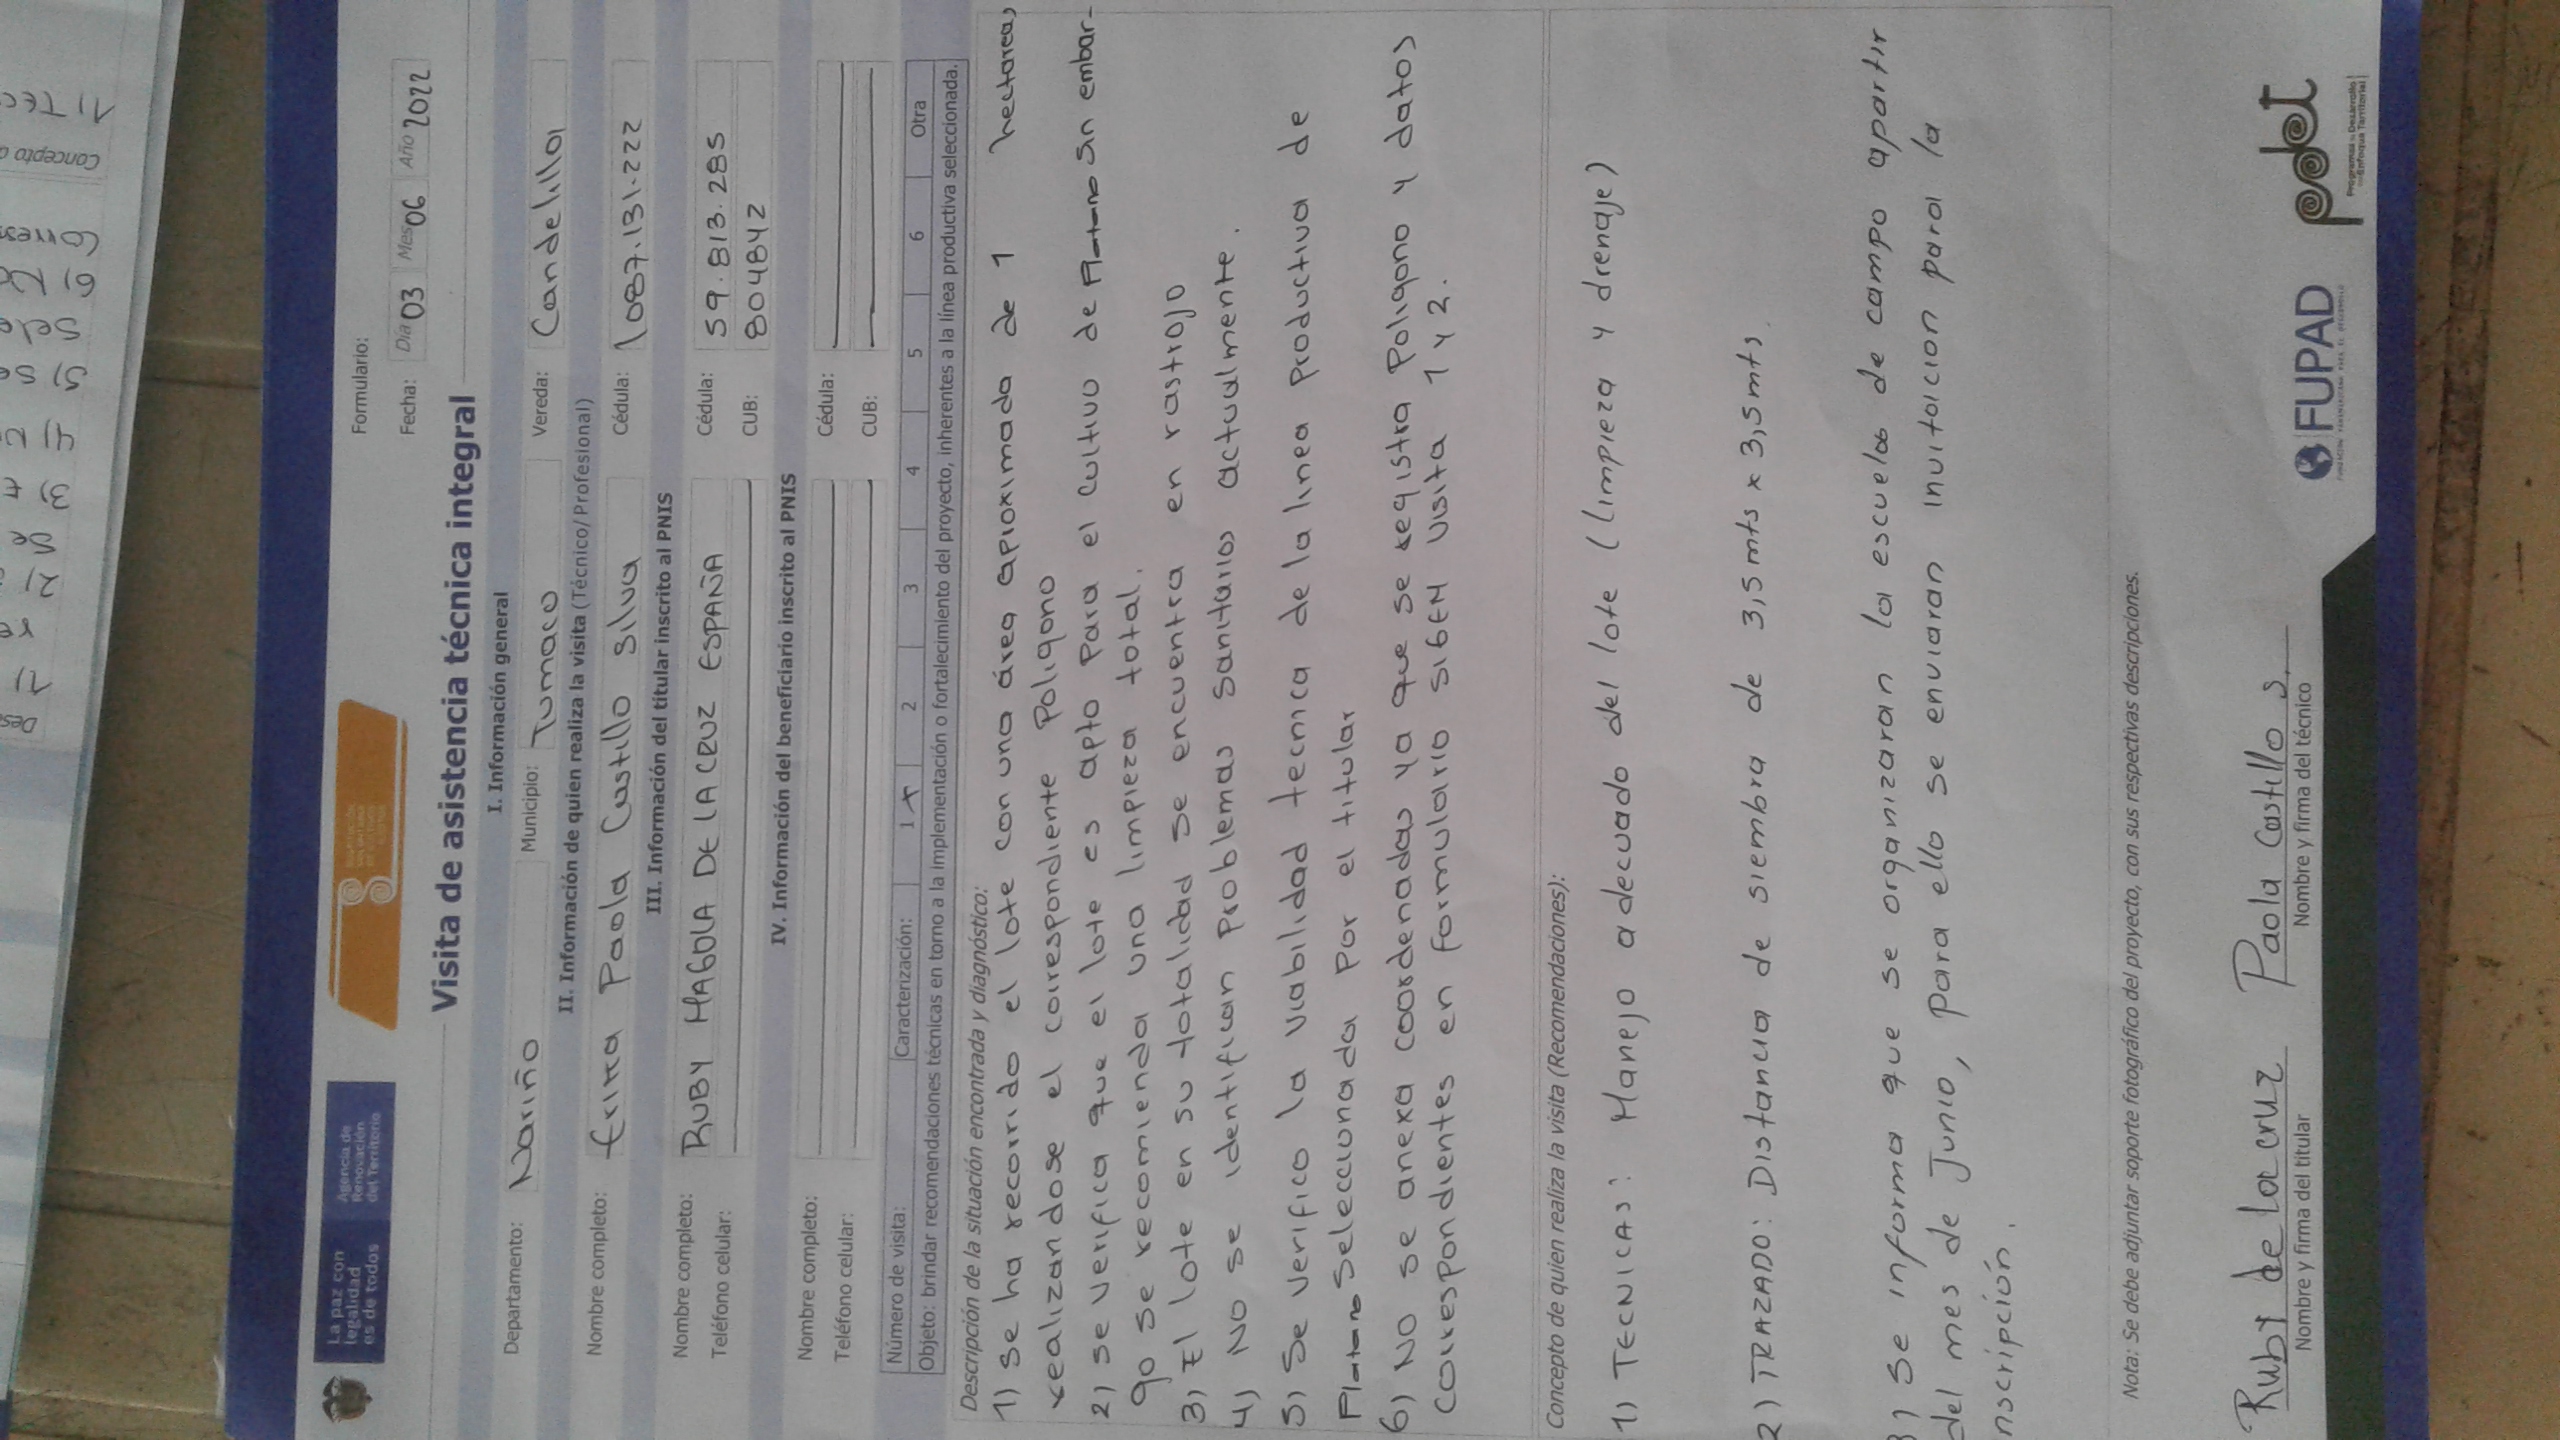 La paz con
legalidad
es de todos
Agencia de
Renovación
del Territorio
Formulario:
Fecha: Día 03 Mes 06 Año 2022
Visita de asistencia técnica integral
I. Información general
Departamento: Nariño Municipio: Tumaco Vereda: Candelilla
II. Información de quien realiza la visita (Técnico/ Profesional)
Nombre completo: Erika Paola Castillo Silva Cédula: 1087.131.222
III. Información del titular inscrito al PNIS
Nombre completo: RUBY MAGOLA DE LA CRUZ ESPAÑA Cédula: 59.813.285
Teléfono celular: CUB: 804842
IV. Información del beneficiario inscrito al PNIS
Nombre completo: Cédula:
Teléfono celular: CUB:
Número de visita: Caracterización: 1 X 2 3 4 5 6 Otra
Objeto: brindar recomendaciones técnicas en torno a la implementación o fortalecimiento del proyecto, inherentes a la línea productiva seleccionada.
Descripción de la situación encontrada y diagnóstico:
1) Se ha recorrido el lote con una área aproximada de 1 hectareas
realizandose el correspondiente Poligono
2) Se verifica que el lote es apto Para el cultivo de Platano Sin embar-
go se recomienda una limpieza total.
3) El lote en su totalidad se encuentra en rastrojo
4) NO se identifican Problemas Sanitarios actualmente.
5) Se Verifico la viabilidad tecnica de la linea Productiva de
Platano Seleccionada Por el titular
6) NO se anexa coordenadas ya que se registra Poligono y datos
Correspondientes en formulario SIGEN Visita 1 y 2.
Concepto de quien realiza la visita (Recomendaciones):
1) TECNICAS: Manejo adecuado del lote (limpieza y drenaje)
2) TRAZADO: Distancia de siembra de 3,5 mts x 3,5 mts.
3) Se informa que se organizaran la escuelas de campo apartir
del mes de Junio, para ello se enviaran invitacion para la
nscripción.
Nota: Se debe adjuntar soporte fotográfico del proyecto, con sus respectivas descripciones.
Ruby de la cruz Paola Castillo S.
Nombre y firma del titular Nombre y firma del técnico
FUPAD
pdet
Programas de Desarrollo
con Enfoque Territorial